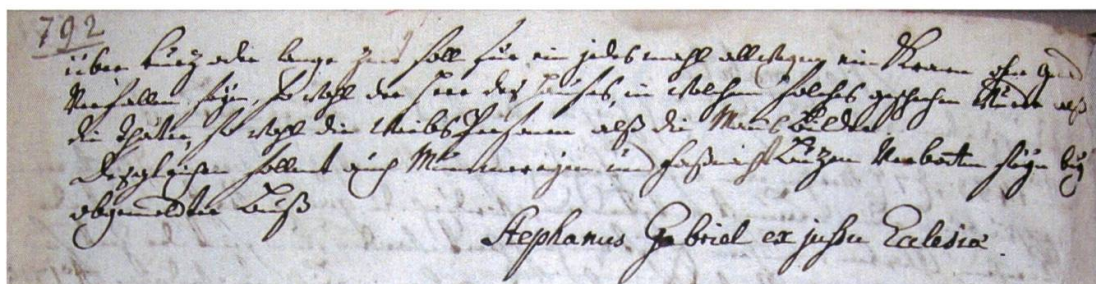 792
über kurz oder lange Zeit soll für ein jedes mahl allwegen ein Kronen ohn Gnad
Verfallen seyn, so wohl der Herr des Hauses, in welchem solches geschehen wurde alß
die Thäter, so wohl die Weibs Personen alß die Mans Bilder
Deßgleichen sollent auch Mummereyen und Faßnacht Butzen Verbotten seyn bey
obgemeldter Buß
Stephanus Gabriel ex jussu Ecclesiæ